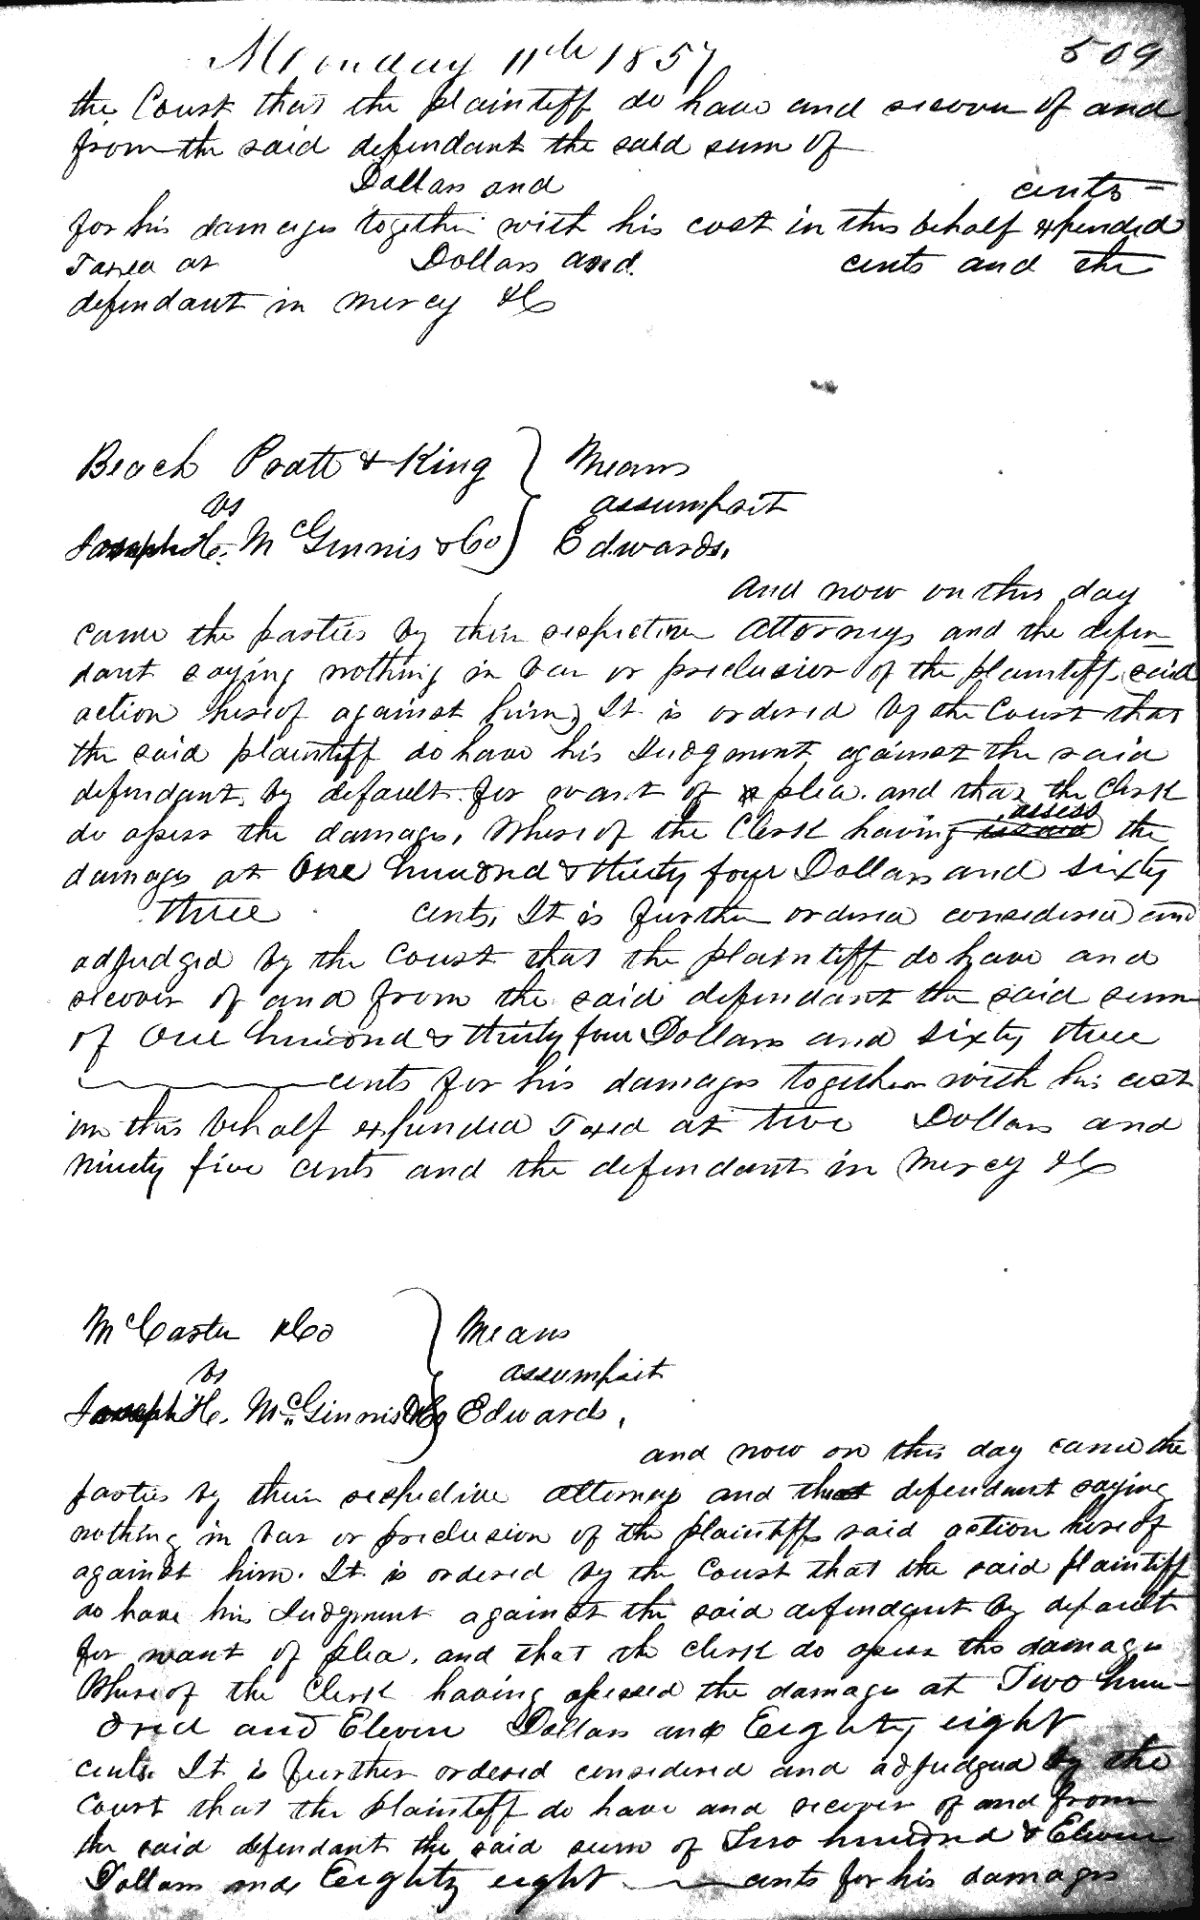 Monday 11th 1857
509
the Court that the plaintiff do have and recover of and
from the said defendant the said sum of
Dollars and cents =
for his damages together with his cost in this behalf expended
Taxed at Dollars and cents and the
defendant in mercy &C
Beach Pratt & King } Means
vs assumpsit
Joseph H. McGinnis & Co Edwards.
And now on this day
came the parties by their respective attorneys and the defen-
dant saying nothing in bar or preclusion of the plaintiffs said
action hereof against him, It is ordered by the Court that
the said plaintiff do have his Judgment against the said
defendant by default for want of a plea. and that the Clerk
do assess the damages, Whereof the Clerk having assess the
damages at One hundred & thirty four Dollars and sixty
three cents, It is further ordered considered and
adjudged by the Court that the plaintiff do have and
recover of and from the said defendant the said sum
of One hundred & thirty four Dollars and sixty three
cents for his damages together with his cost
in this behalf expended Taxed at two Dollars and
ninety five cents and the defendant in mercy &C
McCaster & Co } Means
vs assumpsit
Joseph H. McGinnis & Co Edwards,
and now on this day came the
parties by their respective attorneys and that defendant saying
nothing in bar or preclusion of the plaintiffs said action hereof
against him. It is ordered by the Court that the said plaintiff
do have his Judgment against the said defendant by default
for want of plea, and that the clerk do assess the damages
Whereof the Clerk having assessed the damages at Two hun-
dred and Eleven Dollars and Eighty eight
cents. It is further ordered considered and adjudged by the
Court that the plaintiff do have and recover of and from
the said defendant the said sum of Two hundred & Eleven
Dollars and Eighty eight cents for his damages